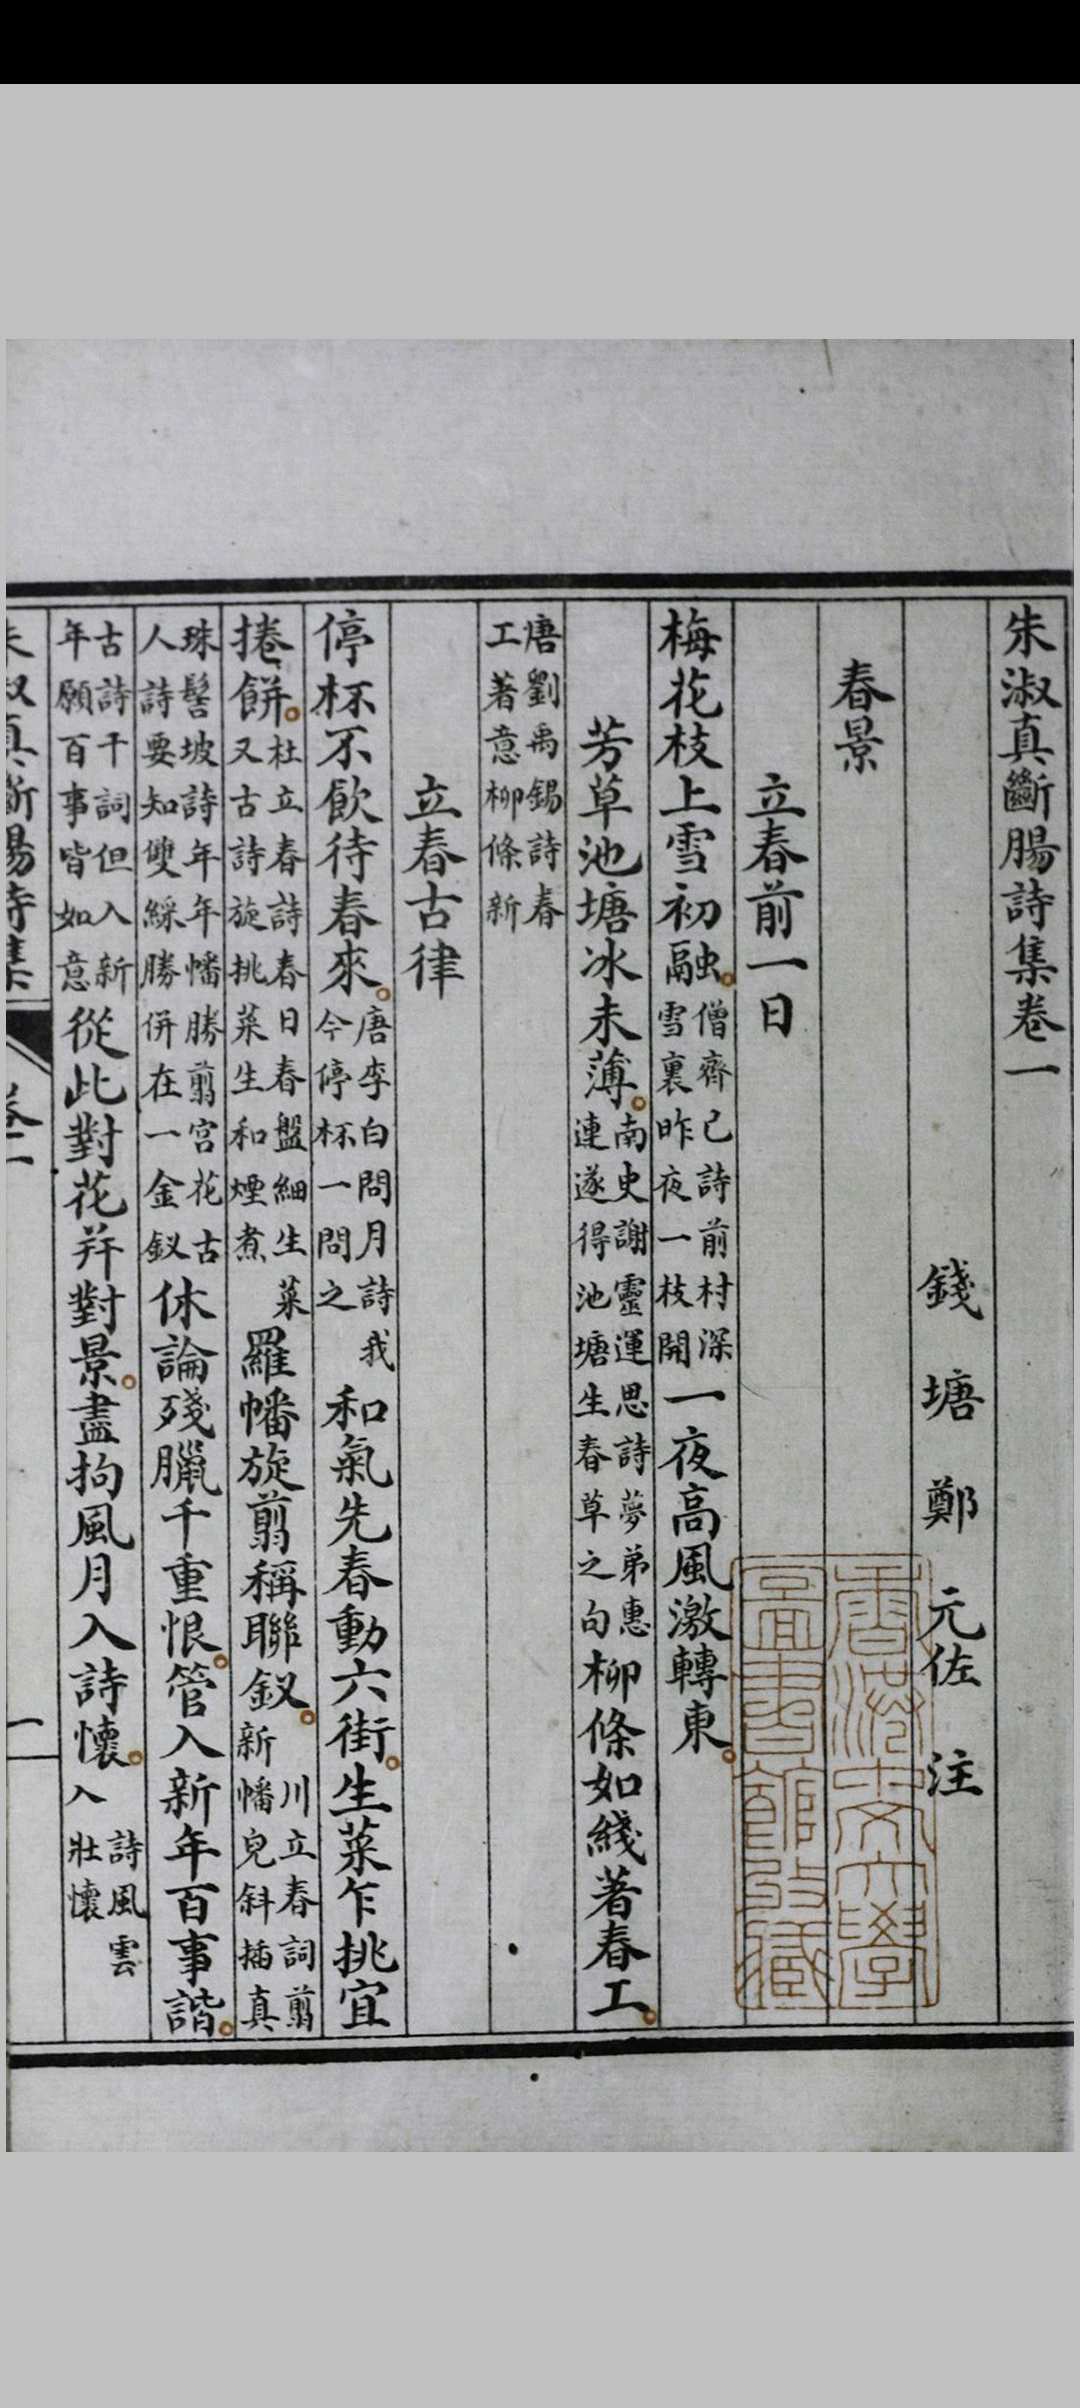 朱淑真斷腸詩集卷一
錢塘鄭元佐注
春景
立春前一日
梅花枝上雪初融。僧齊己詩前村深雪裏昨夜一枝開一夜高風激轉東。
芳草池塘冰未薄。南史謝靈運思詩夢弟惠連遂得池塘生春草之句柳條如綫著春工。
唐劉禹錫詩春工著意柳條新
立春古律
停杯不飲待春來。唐李白問月詩我今停杯一問之和氣先春動六街。生菜乍挑宜
捲餅。杜立春詩春日春盤細生菜又古詩旋挑菜生和煙煮羅幡旋翦稱聯釵。川立春詞翦新幡兒斜插真
珠髻坡詩年年幡勝翦宮花古人詩要知雙綵勝併在一金釵休論殘臘千重恨。管入新年百事諧。
古詩千詞但入新年願百事皆如意從此對花并對景。盡拘風月入詩懷。詩風雲入壯懷
朱淑真斷腸詩集
一
香港中文大學
圖書館藏